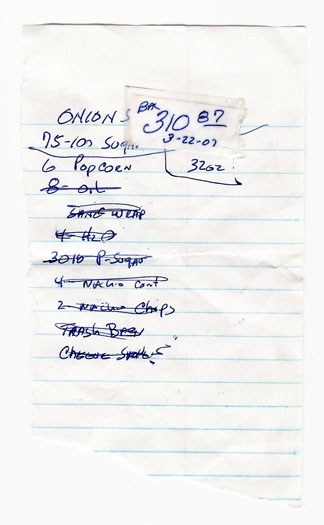 ONIONS
BAL
310 87
3-22-07
75-100 Sugar
6 Popcorn 32oz.
8- oil
SANE WRAP
4- H2O
3010 P-Sugar
4- Nacho Cont
2- Nacho Chips
TRASH BAGS
Cheese